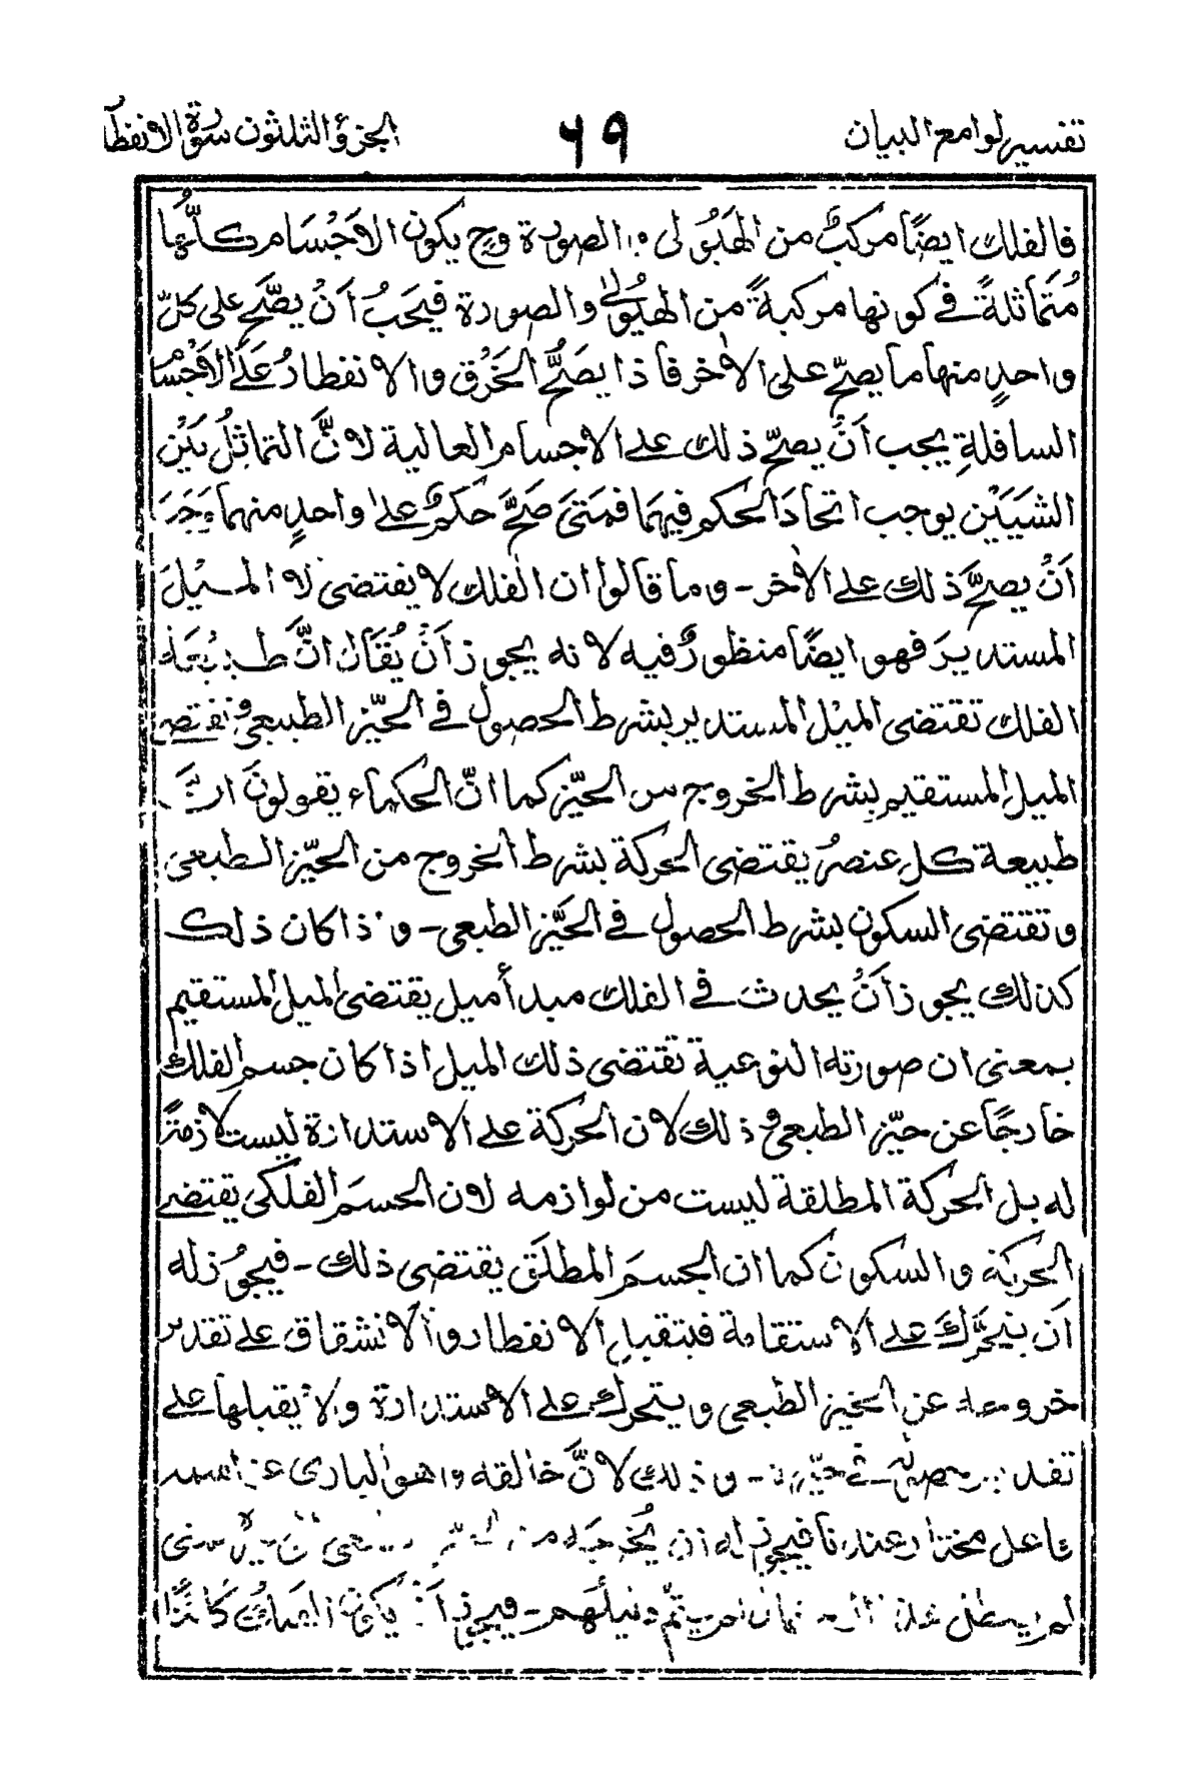 تفسير لوامع البيان ٦٩ الجزؤ الثلثون سورة الانفطا
فالفلك ايضًا مركبٌ من الهَيُولى و الصورة وح يكون الاَجْسَام كلّها
مُتَمَاثلةً فے كونها مركبةً من الهيُولٰى والصورة فيَجَبُ اَنْ يصَّح على كلّ
واحدٍ منها ما يصحّ على الاٰخر فاذا يصَحُّ الخَرْق والانفطارُ عَلَے الاَجْسَام
السافلةِ يجب اَنْ يصحّ ذلك علے الاجسام العالية لانَّ التماثِلُ بَيْن
الشيَيَيْن يوجب اتحادَ الحكم فيهمَا فمَتىٰ صَحَّ حكمٌ علےٰ واحدٍ منهما وَجَرَ
اَنْ يصحَّ ذلك علے الاٰخر - وما قالوا ان الفلك لا يقتضى لاه الميْلَ
المستديرَ فهو ايضًا منظورٌ فيه لانه يجوز اَنْ يُقَال انَّ طبيعَة
الفلك تقتضى الميْل المستدير بشرط الحصول فے الحيّز الطبيعى و تقتضى
الميل المستقيم بشرط الخروج من الحيّز كما انّ الحكماء يقولونَ انَّ
طبيعة كل عنصرٍ يقتضى الحركة بشرط الخروج من الحيّز الطبعى
وتقتضى السكون بشرط الحصول فے الحيَّز الطبعى - واذا كان ذلك
كذلك يجوز اَنْ يحدث فے الفلك مبدأ ميل يقتضى الميل المستقيم
بمعنى ان صورته النوعية تقتضى ذلك الميل اذا كان جسم الفلك
خارجًا عن حيّز الطبعى و ذلك لان الحركة علے الاستدارة ليست لازمةً
له بل الحركة المطلقة ليست من لوازمه لان الجسمَ الفلكى يقتضے
الحركة والسكون كما ان الجسمَ المطلَق يقتضى ذلك - فيجوُز له
اَن يتحَّرك علے الاستقامة فيتقبل الانفطار والانشقاق علے تقدير
خروجه عن الحيز الطبعى ويتحرك علے الاستدارة ولا يقبلها علے
تقدير حصوله فے حيّزه - وذلك لانَّ خالقه وهو البارى عز اسمه
فاعل مختار عندنا فيجوز له ان يُخرجَه من
ثم دنيلُهم - فيجوز اَنْ يكون الفلك كائنًا